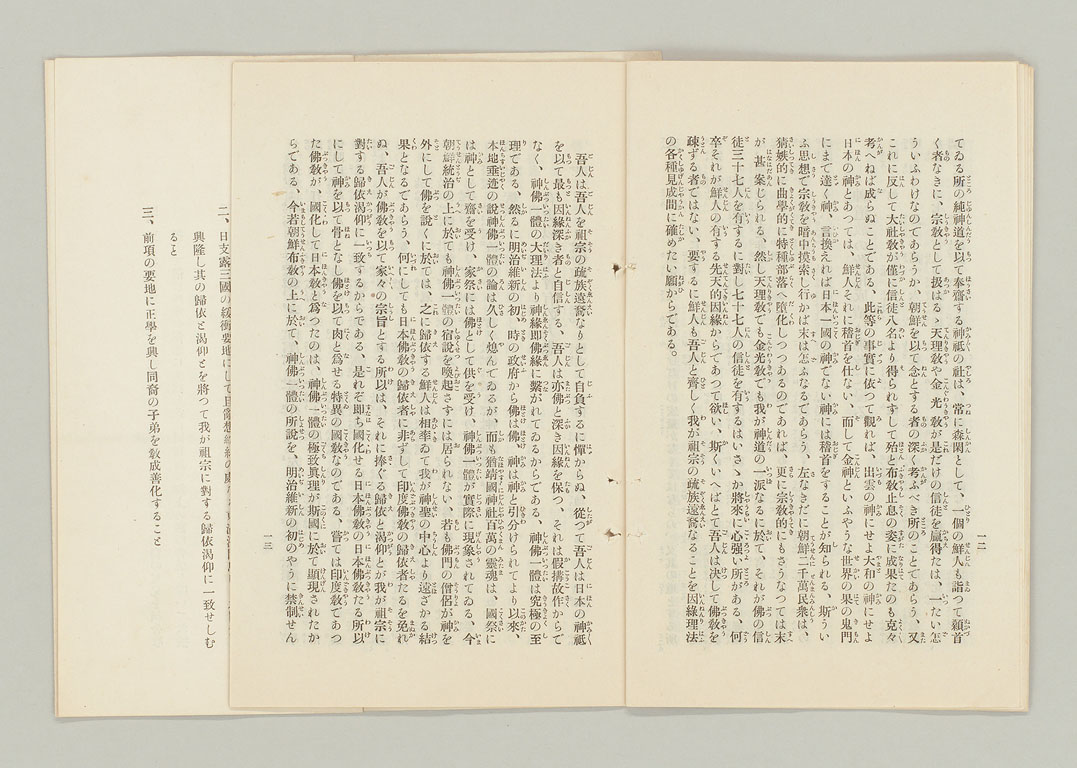 てゐる所の純神道を以て奉齋する神祇の社は、常に森閑として、一個の鮮人も詣つて額首
く者なきに、宗敎として扱はるゝ天理敎や金光敎が是だけの信徒を贏得たは、一たい怎
ういふわけなのであらうか、朝鮮を以て念とする者の深く考ふべき所のことであらう、又
これに反して大社敎が僅に信徒八名より得られずして殆と布敎止息の姿に成果たのも克々
考へねば成らぬことである、此等の事實に依つて觀れば、出雲の神にせよ大和の神にせよ
日本の神とあつては、鮮人それに稽首を仕ない、而して金神といふやうな世界の果の鬼門
にまで逹く神、言換えれば日本一國の神でない神には稽首をすることが知られる、斯うい
ふ思想で宗敎を暗中摸索し行かば末は怎ふなるであらう、左なきだに朝鮮二千萬民衆は、
猜嫉的に曲學的に特種部落へ墮化しつつあるのであれば、更に宗敎的にもさうなつては末
が甚案じられる、然し天理敎でも金光敎でも我が神道の一派なるに於て、それが佛の信
徒三十七人を有するに對し七十七人の信徒を有するはいさゝか將來に心强い所がある、何
卒それが鮮人の有する先天的因緣からであつて欲い、斯くいへばとて吾人は決して佛敎を
疎ずる者ではない、要するに鮮人も吾人と齊しく我が祖宗の疏族遠裔なることを因緣理法
の各種見成間に確めたい願からである。
一二
吾人は吾人を祖宗の疏族遠裔なりとして自負するに憚からぬ、從つて吾人は日本の神祇
を以て最も因緣深き者と自信する、吾人は亦佛と深き因緣を保つ、それは假搆故作からで
なく、神佛一體の大理法より神緣即佛緣に繫がれてゐるからである、神佛一體は究極の至
理である、然るに明治維新の初、時の政府から佛は佛、神は神と引分けられてより以來、
本地垂迹の說神佛一體の論は久しく熄んでゐるが、而も猶靖國神社百萬の靈魂は、國祭に
は神として齋を受け、家祭には佛として供を受け、神佛一體が實際に現象されてゐる、今
朝鮮統治の上に於ても神佛一體の宿說を喚起さずには居られない、若も佛門の僧侶が神を
外にして佛を說くに於ては、之に歸依する鮮人は相率ゐて我が神聖の中心より遠ざかる結
果となるであらう、何にしても日本佛敎の歸依者に非ずして印度佛敎の歸依者たるを免れ
ぬ、吾人が佛敎を以て家々の宗旨とする所以は、それに捧ぐる歸依と渴仰とが我が祖宗に
對する歸依渴仰に一致するからである、是れぞ即ち國化せる日本佛敎の日本佛敎たる所以
にして神を以て骨となし佛を以て肉と爲せる特異の國敎なのである、嘗ては印度敎であつ
た佛敎が、國化して日本敎と爲つたのは、神佛一體の極致眞理が斯國に於て顯現されたか
らである、今若朝鮮布敎の上に於て、神佛一體の所說を、明治維新の初のやうに禁制せん
一三
二、日支露三國の緩衝要地にして
興隆し其の歸依と渴仰とを將つて我が祖宗に對する歸依渴仰に一致せしむ
ること
三、前項の要地に正學を興し同裔の子弟を敎成善化すること